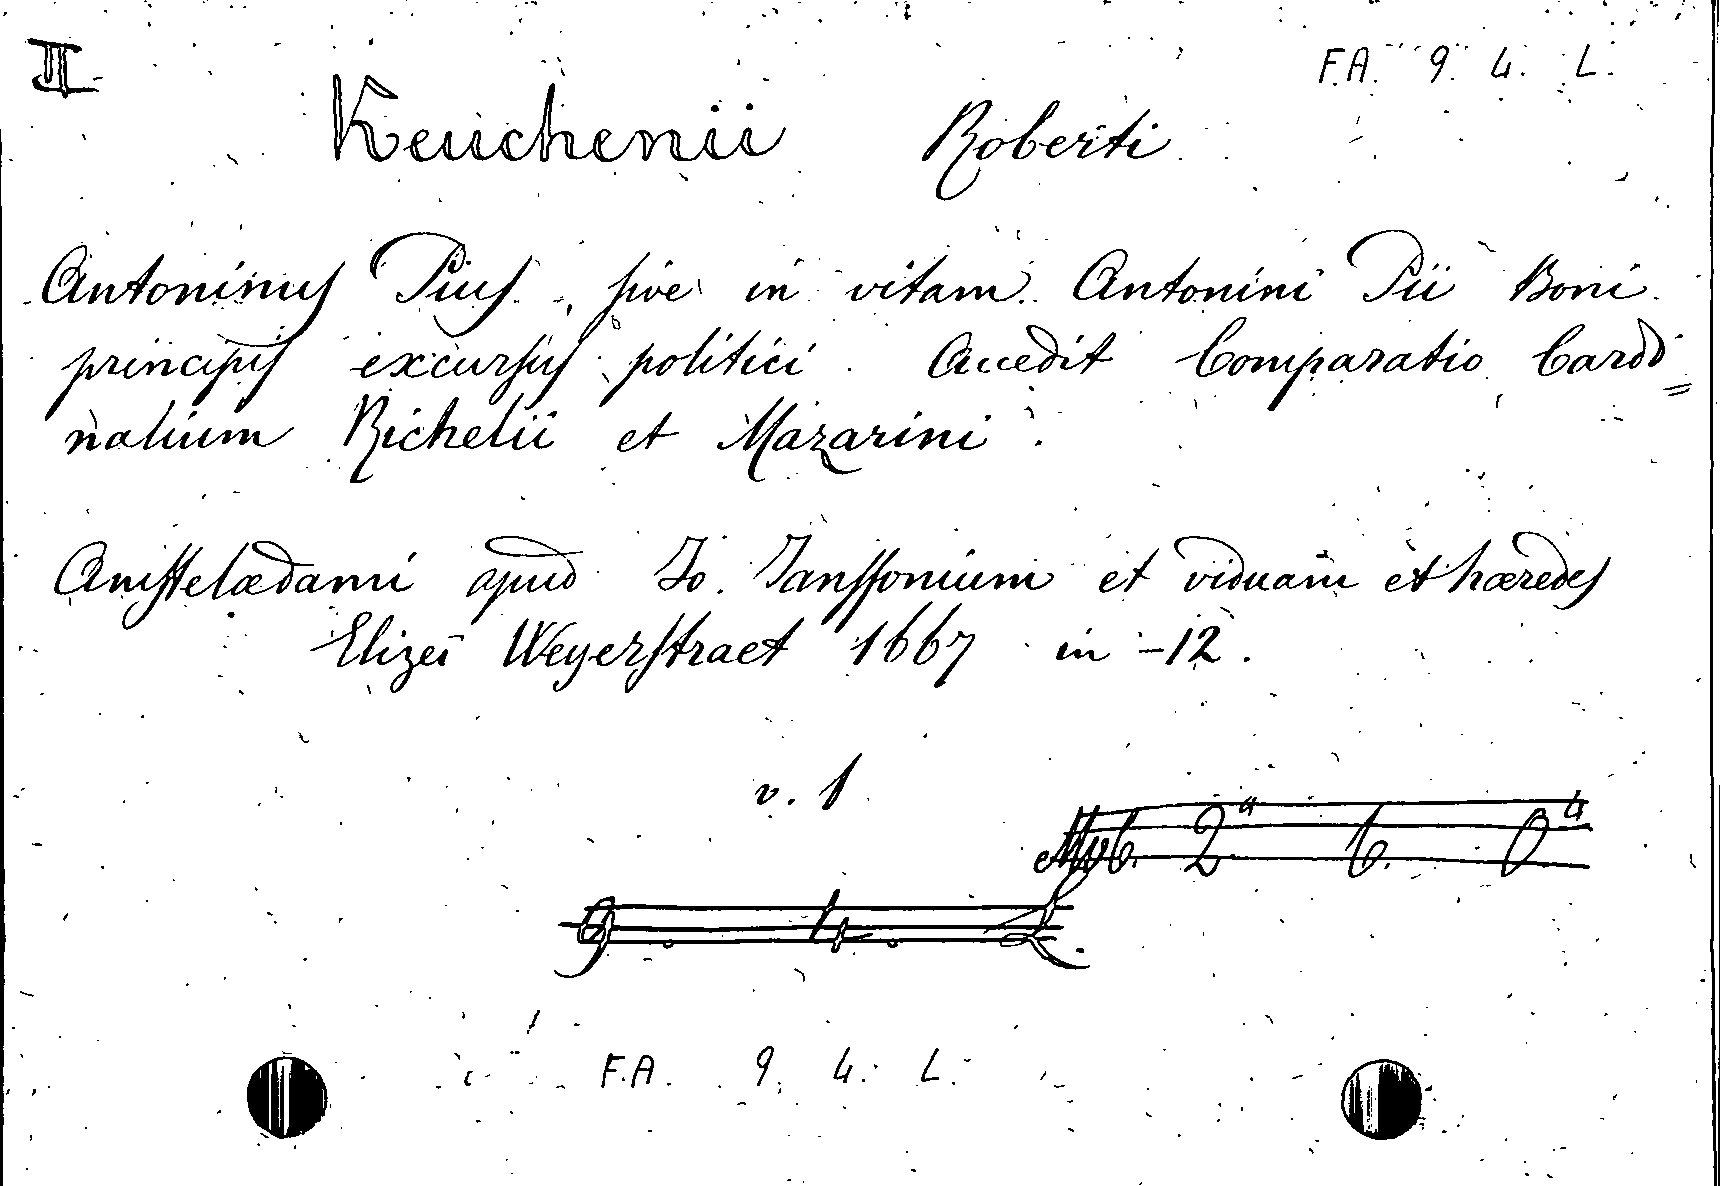 II
F.A. 9. 4. L.
Keuchenii Roberti
Antoninus Pius, sive in vitam Antonini Pii Boni
principis excursus politici. Accedit Comparatio Cardi=
nalium Richelii et Mazarini.
Amstelædami apud Jo. Janssonium et viduam et hæredes
Elizei Weyerstraet 1667 in-12.
v. 1
Mob. 2a 6. 0a
9. 4. L.
F.A. 9. 4. L.